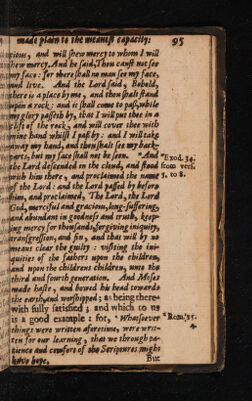 made plain to the meanest capacity: 95
cious, and will shew mercy to whom I will
shew mercy. And he said, Thou canst not see
my face: for there shall no man see my face,
and live. And the Lord said, Behold,
there is a place by me, and thou shalt stand
upon a rock: and it shall come to pass, while
my glory passeth by, that I will put thee in a
clift of the rock, and will cover thee with
mine hand whilst I pass by: and I will take
away my hand, and thou shalt see my back-
parts, but my face shall not be seen. *And
the Lord descended in the cloud, and stood
with him there, and proclaimed the name
of the Lord: and the Lord passed by before
him, and proclaimed, The Lord, the Lord
God, merciful and gracious, long-suffering,
and abundant in goodness and truth, keep-
ing mercy for thousands, forgiving iniquity,
transgression, and sin, and that will by no
means clear the guilty: visiting the ini-
quities of the fathers upon the children,
and upon the childrens children, unto the
third and fourth generation. And Moses
made haste, and bowed his head towards
the earth, and worshipped; as being there-
with fully satisfied; and which to us
is a good example: for, *Whatsoever
things were written aforetime, were writ-
ten for our learning, that we through pa-
tience and comfort of the Scriptures might
have hope.
But
*Exod. 34.
from vers.
5. to 8.
*Rom. 15.
4.